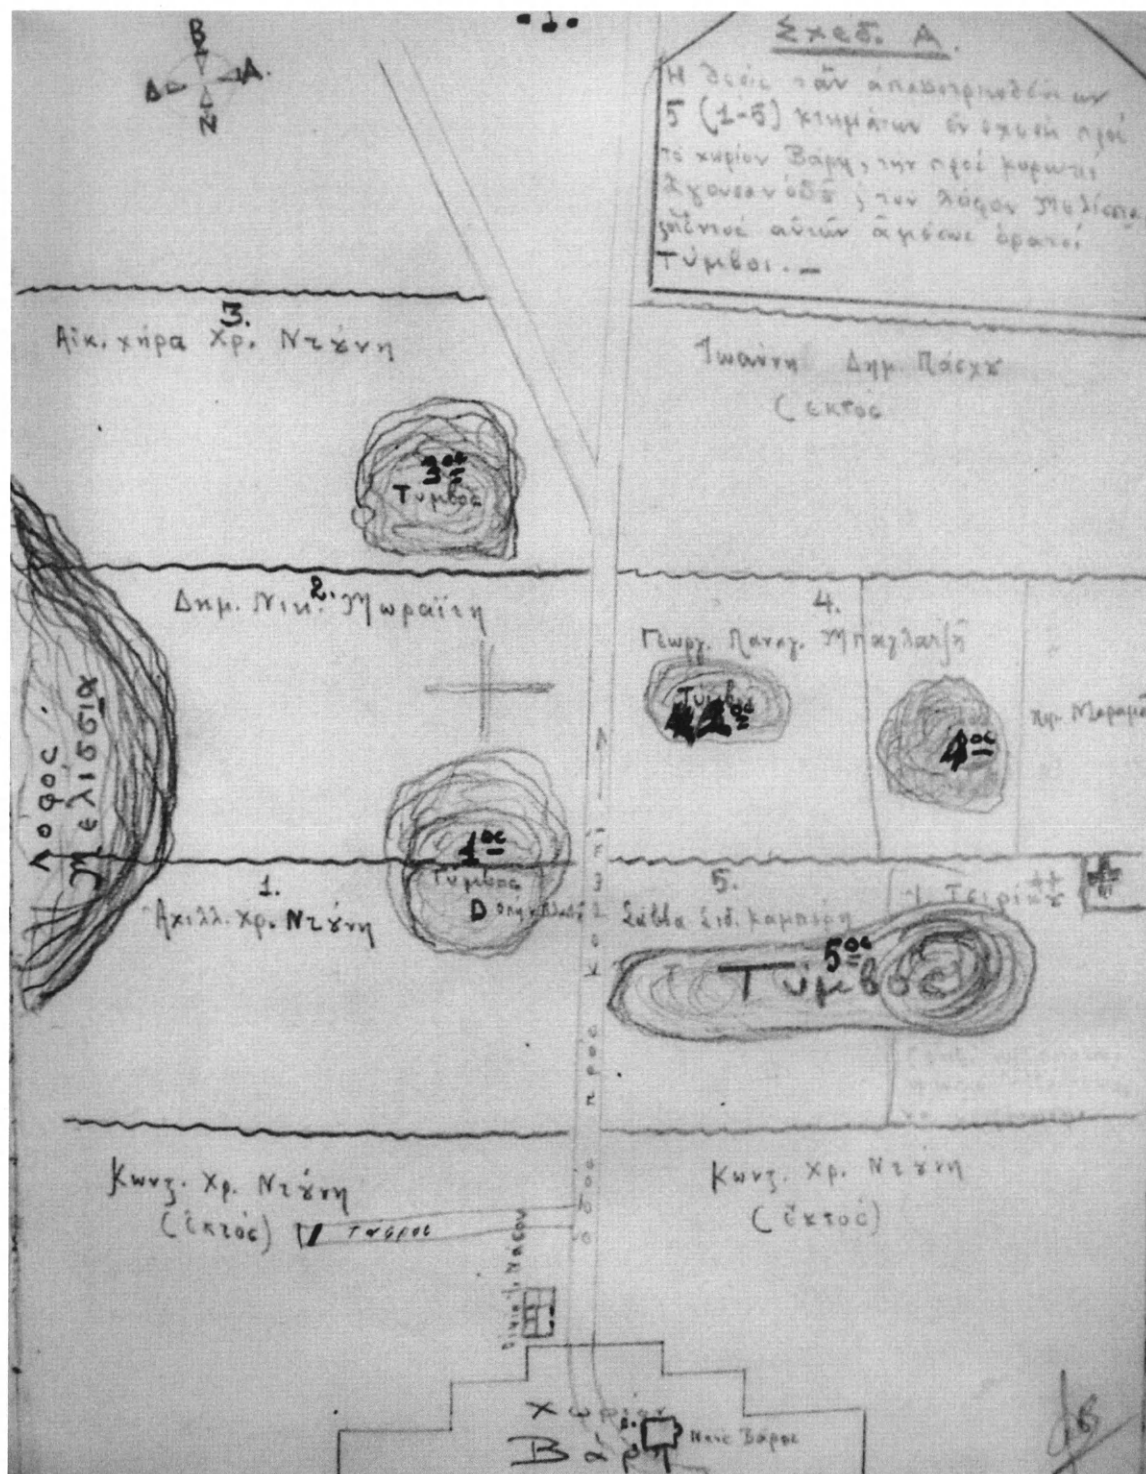 - 1. -
Β
Δ
Α.
Ν
Σχεδ. Α.
Ἡ θέσις τῶν
5 (1-5) κτημάτων ἐν σχέσει πρὸς
τὸ χωρίον Βάρη, τὴν πρὸς Κορωπὶ
ἄγουσαν ὁδὸ, τὸν λόφον Μελίσσια
αὐτῶν ἀμέσως ὁρατοὶ
Τύμβοι. —
3.
Αἰκ. χήρα Χρ. Ντούνη
Ἰωάννη Δημ. Πάσχου
(ἐκτός
3ος
Τύμβος
2.
Δημ. Νικ. Μωραΐτη
4.
Γεωργ. Παναγ. Μπαγλατζῆ
Τύμβος
2ος
4ος
Λόφος
Μελίσσια
1ος
Τύμβος
1.
Ἀχιλλ. Χρ. Ντούνη
5.
Σάββα Σιδ. Καμπούρη
Τσιρίκου
5ος
Τύμβος
ὁδὸς πρὸς Κορωπί
Κωνζ. Χρ. Ντούνη
(ἐκτός)
Τάφρος
Κωνζ. Χρ. Ντούνη
(ἐκτός)
Χωρίον
Βάρη
Ναὸς Βάρης